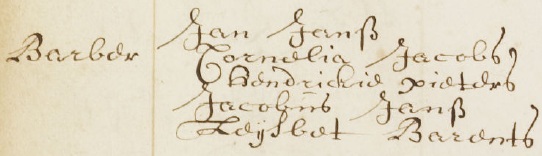 Jan Janß
Barber Cornelia Jacobs
Hendrickie pieters
Jacobus Janß
Leijsbet Barents